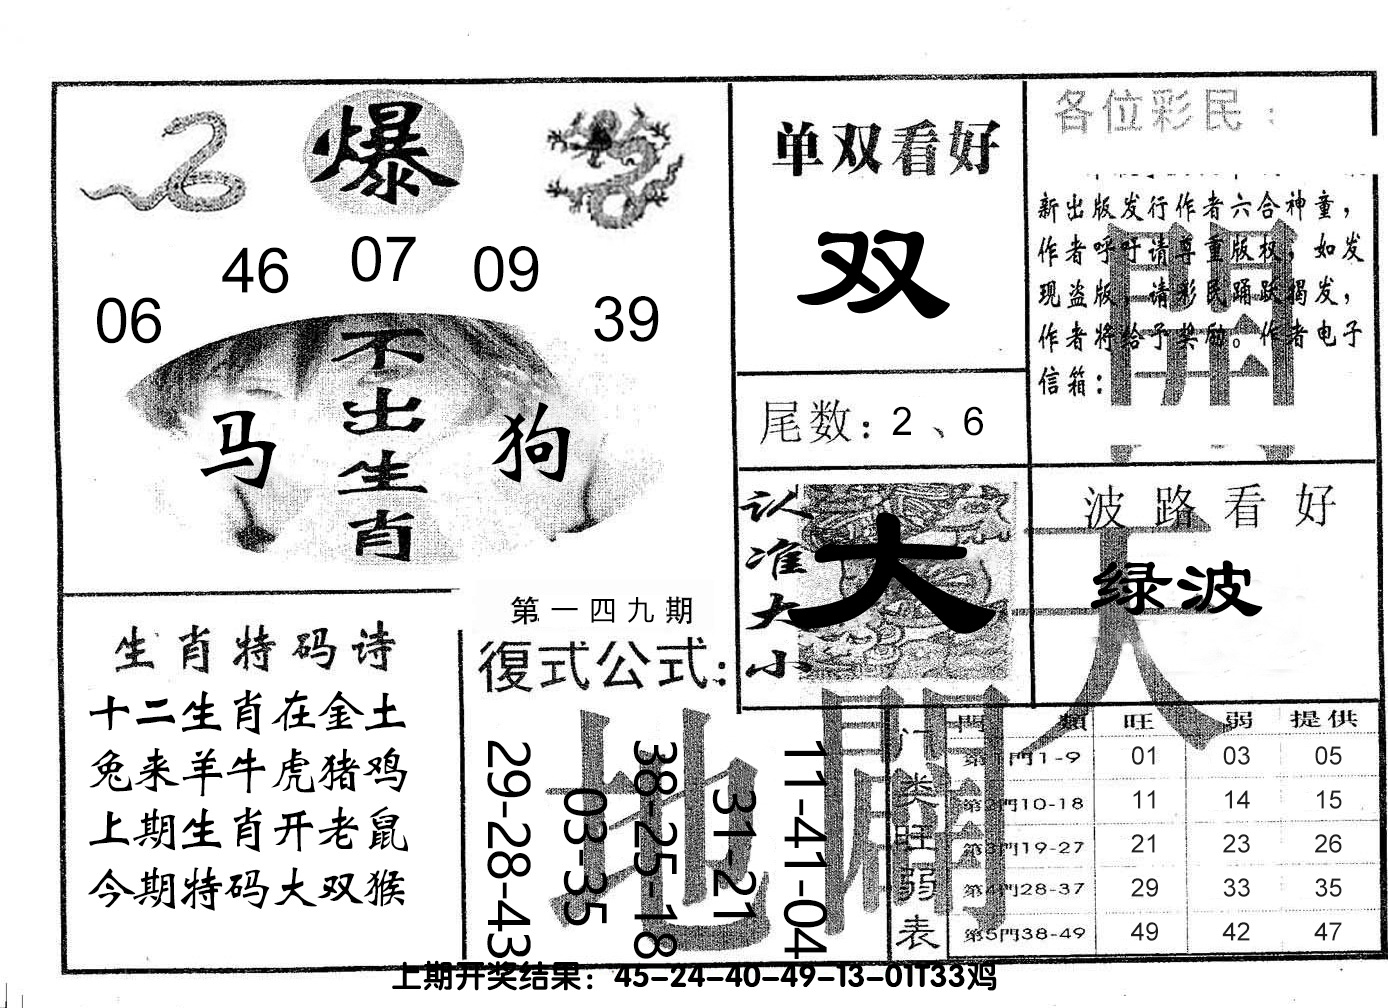 爆
06 46 07 09 39
不出生肖
马 狗
单双看好
双
尾数：2、6
各位彩民：
新出版发行作者六合神童，
作者呼吁请尊重版权，如发
现盗版，请彩民踊跃揭发，
作者将给予奖励。作者电子
信箱：
開
认准大小
大
波路看好
绿波
天
生肖特码诗
十二生肖在金土
兔来羊牛虎猪鸡
上期生肖开老鼠
今期特码大双猴
第一四九期
復式公式：
29-28-43
03-35
38-25-18
31-21
11-41-04
地
開
门类旺弱表
門類 旺 弱 提供
第1門1-9 01 03 05
第2門10-18 11 14 15
第3門19-27 21 23 26
第4門28-37 29 33 35
第5門38-49 49 42 47
上期开奖结果：45-24-40-49-13-01T33鸡